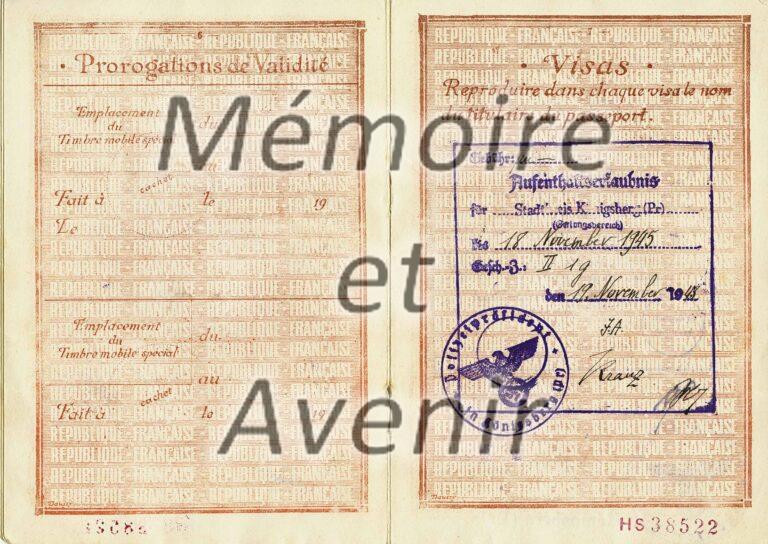 6
· Prorogations de Validité ·
Emplacement
du
Timbre mobile spécial
du
au
cachet
Fait à le 19
Le
Emplacement
du
Timbre mobile spécial
du
au
cachet
Fait à le 19
· Visas ·
Reproduire dans chaque visa le nom
du titulaire du passeport.
Gebühr:
Aufenthaltserlaubnis
für Stadtkreis Königsberg (Pr)
(Geltungsbereich)
bis 18 November 1945
Gesch.-Z.: II 19
den 19. November 194
J.A.
Kranz
Polizeipräsident
in Königsberg (Pr)
HS38522
Mémoire
et
Avenir
RÉPUBLIQUE-FRANÇAISE